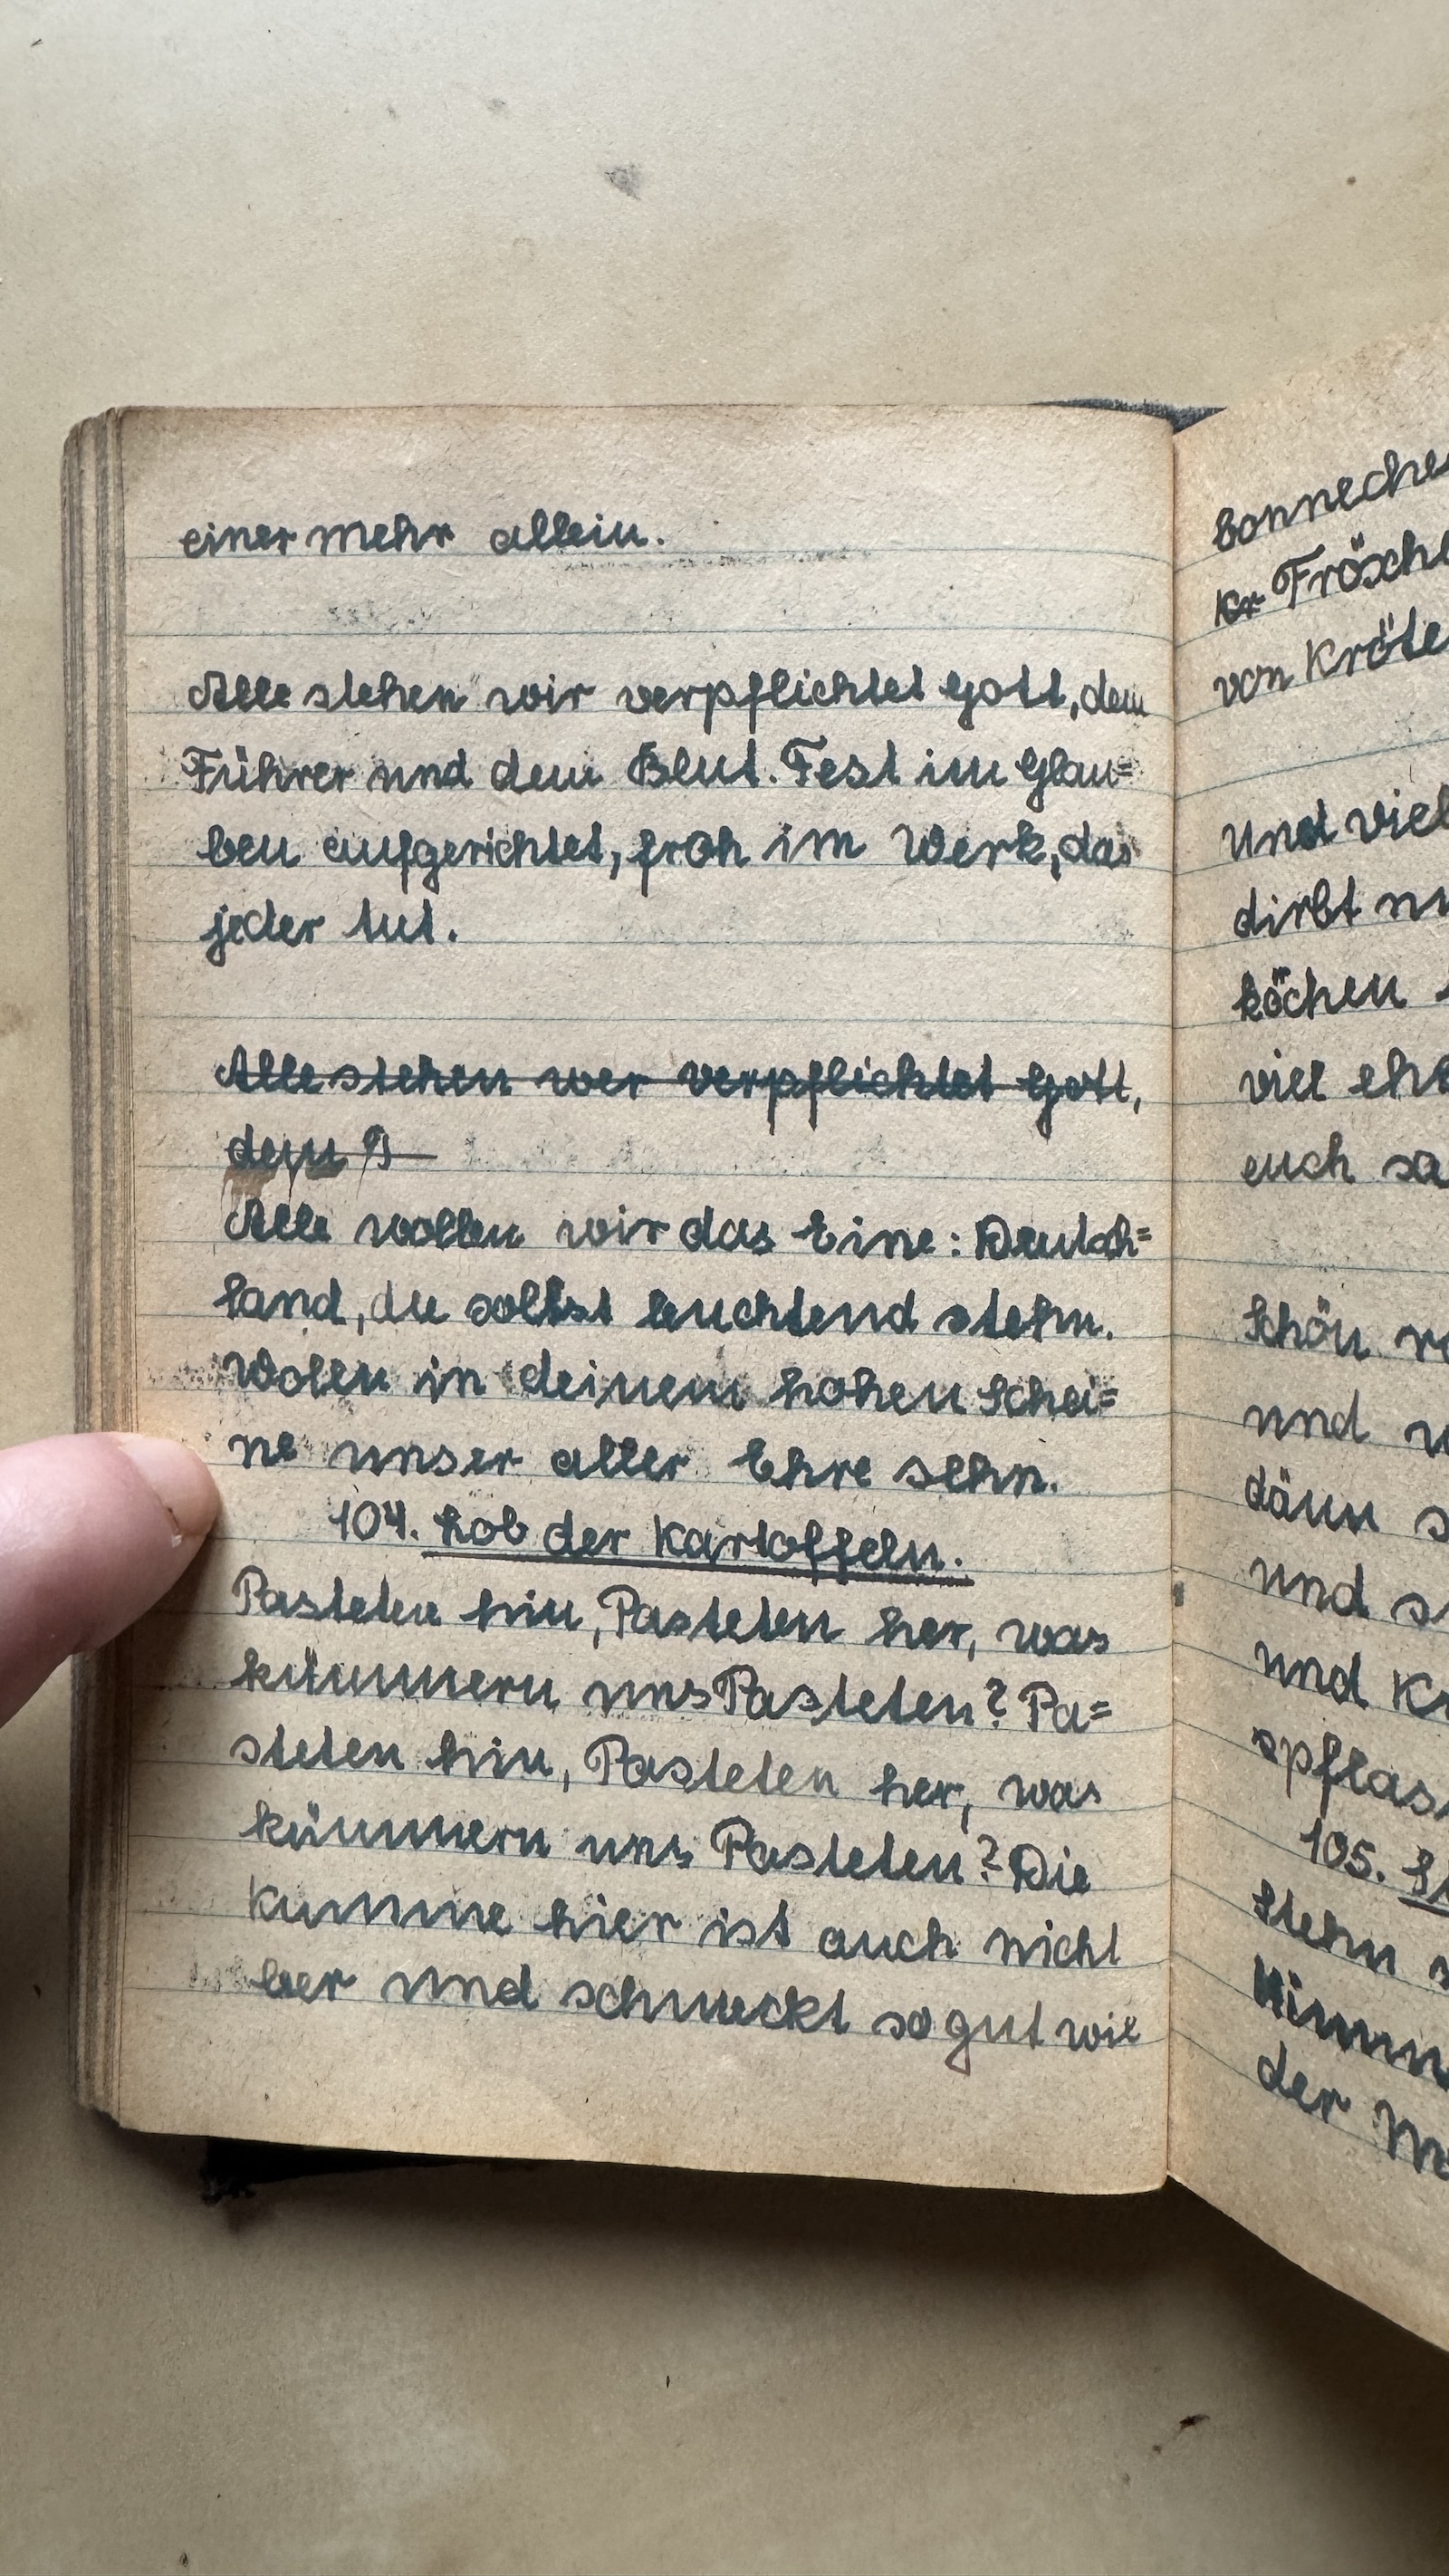 einer mehr allein.
Alle stehen wir verpflichtet Gott, dem
Führer und dem Blut. Fest im Glau=
ben aufgerichtet, froh im Werk, das
jeder tut.
Alle stehen wer verpflichtet Gott,
dem
Alle wollen wir das Eine: Deutsch=
land, du sollst leuchtend stehn.
Wolen in deinem hohen Schei=
ne unser aller Ehre sehn.
104. Lob der Kartoffeln.
Pasteten hin, Pasteten her, was
kümmern uns Pasteten? Pa=
steten hin, Pasteten her, was
kümmern uns Pasteten? Die
Kumme hier ist auch nicht
ber und schmeckt so gut wie
bonneche
Kr Frösche
von Kröte
Und viel
dirbt nu
köchen
viel ehe
euch sa
Schön r
und
dänn s
und s
und Kr
spflas
105.
Stehn
Himm
der